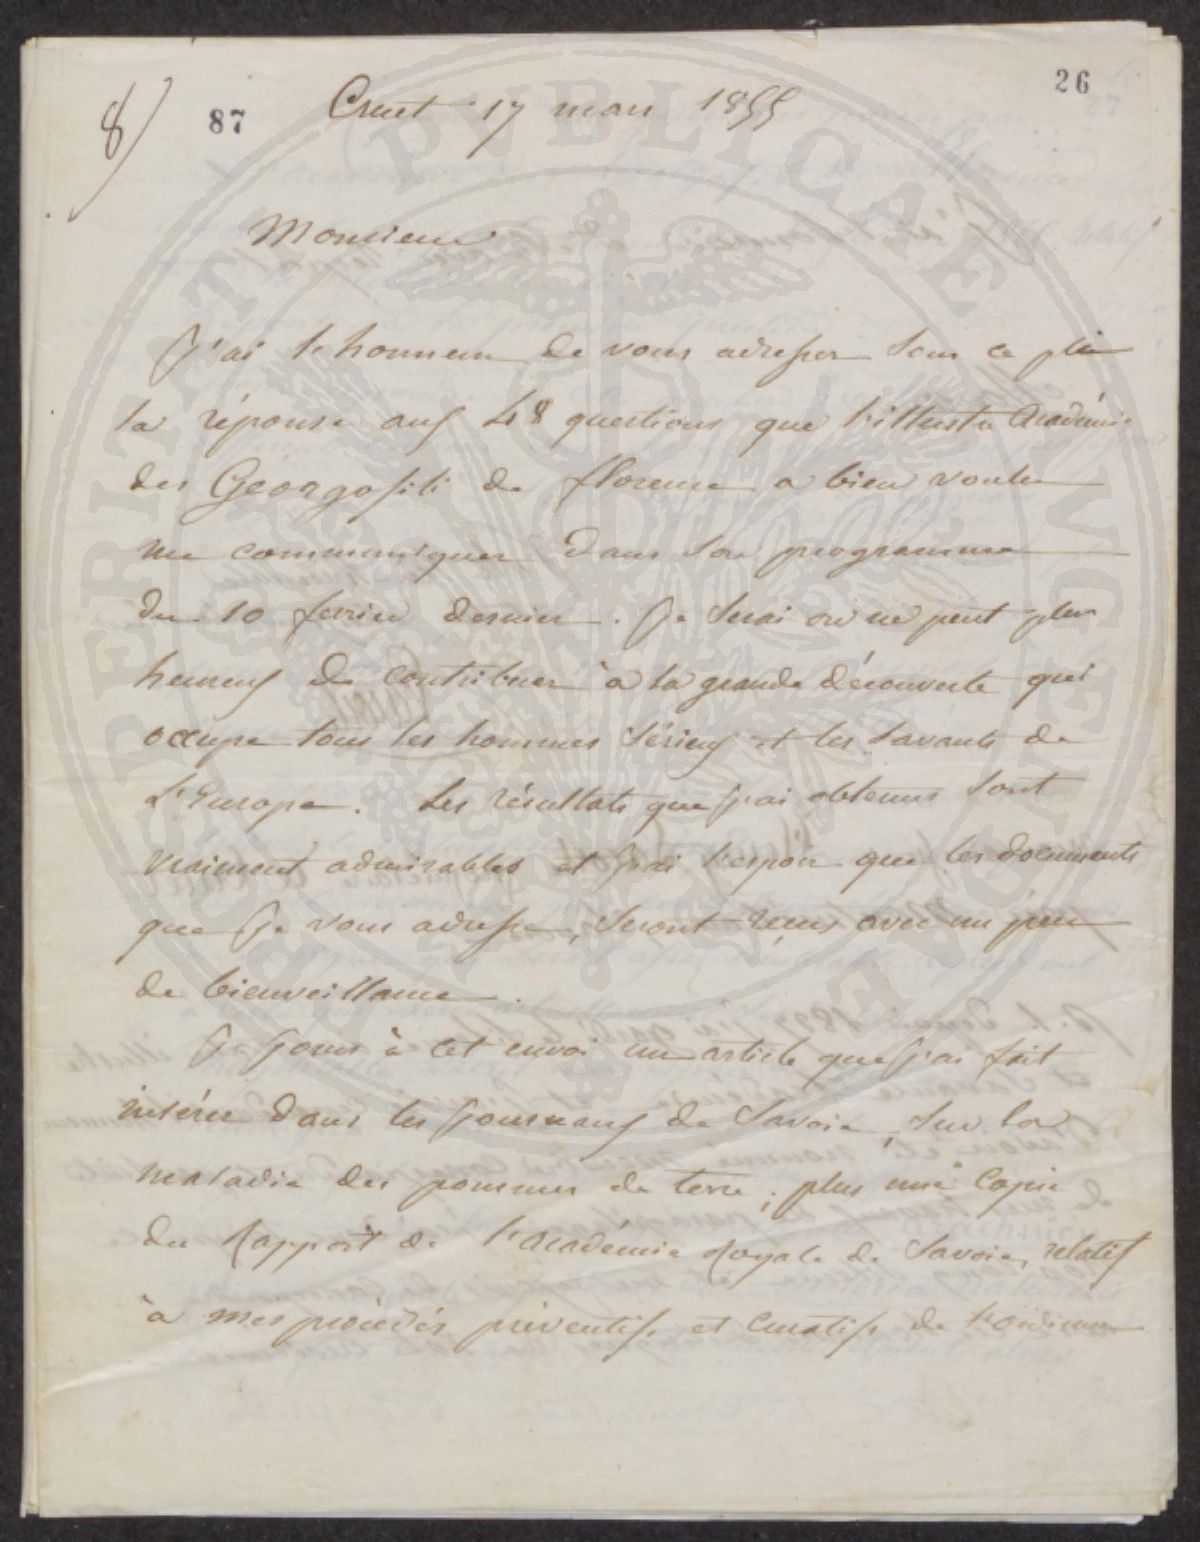 8)
87
26
Cruet 17 mars 1855
Monsieur
J'ai l'honneur de vous adresser sous ce pli
la réponse aux 48 questions que l'illustre Académie
des Georgofili de florence a bien voulu
me communiquer dans son programme
du 10 fevrier dernier. Je serai on ne peut plus
heureux de contribuer à la grande découverte qui
occupe tous les hommes sérieux et les savants de
L'Europe. Les résultats que j'ai obtenus sont
vraiment admirables et j'ai l'espoir que les documents
que je vous adresse, seront reçus avec un peu
de bienveillance.
Je joins à cet envoi un article que j'ai fait
insérer dans les journaux de Savoie, sur la
maladie des pommes de terre; plus une copie
du rapport de l'académie royale de Savoie, relatif
à mes procédés préventifs et curatifs de l'oïdium